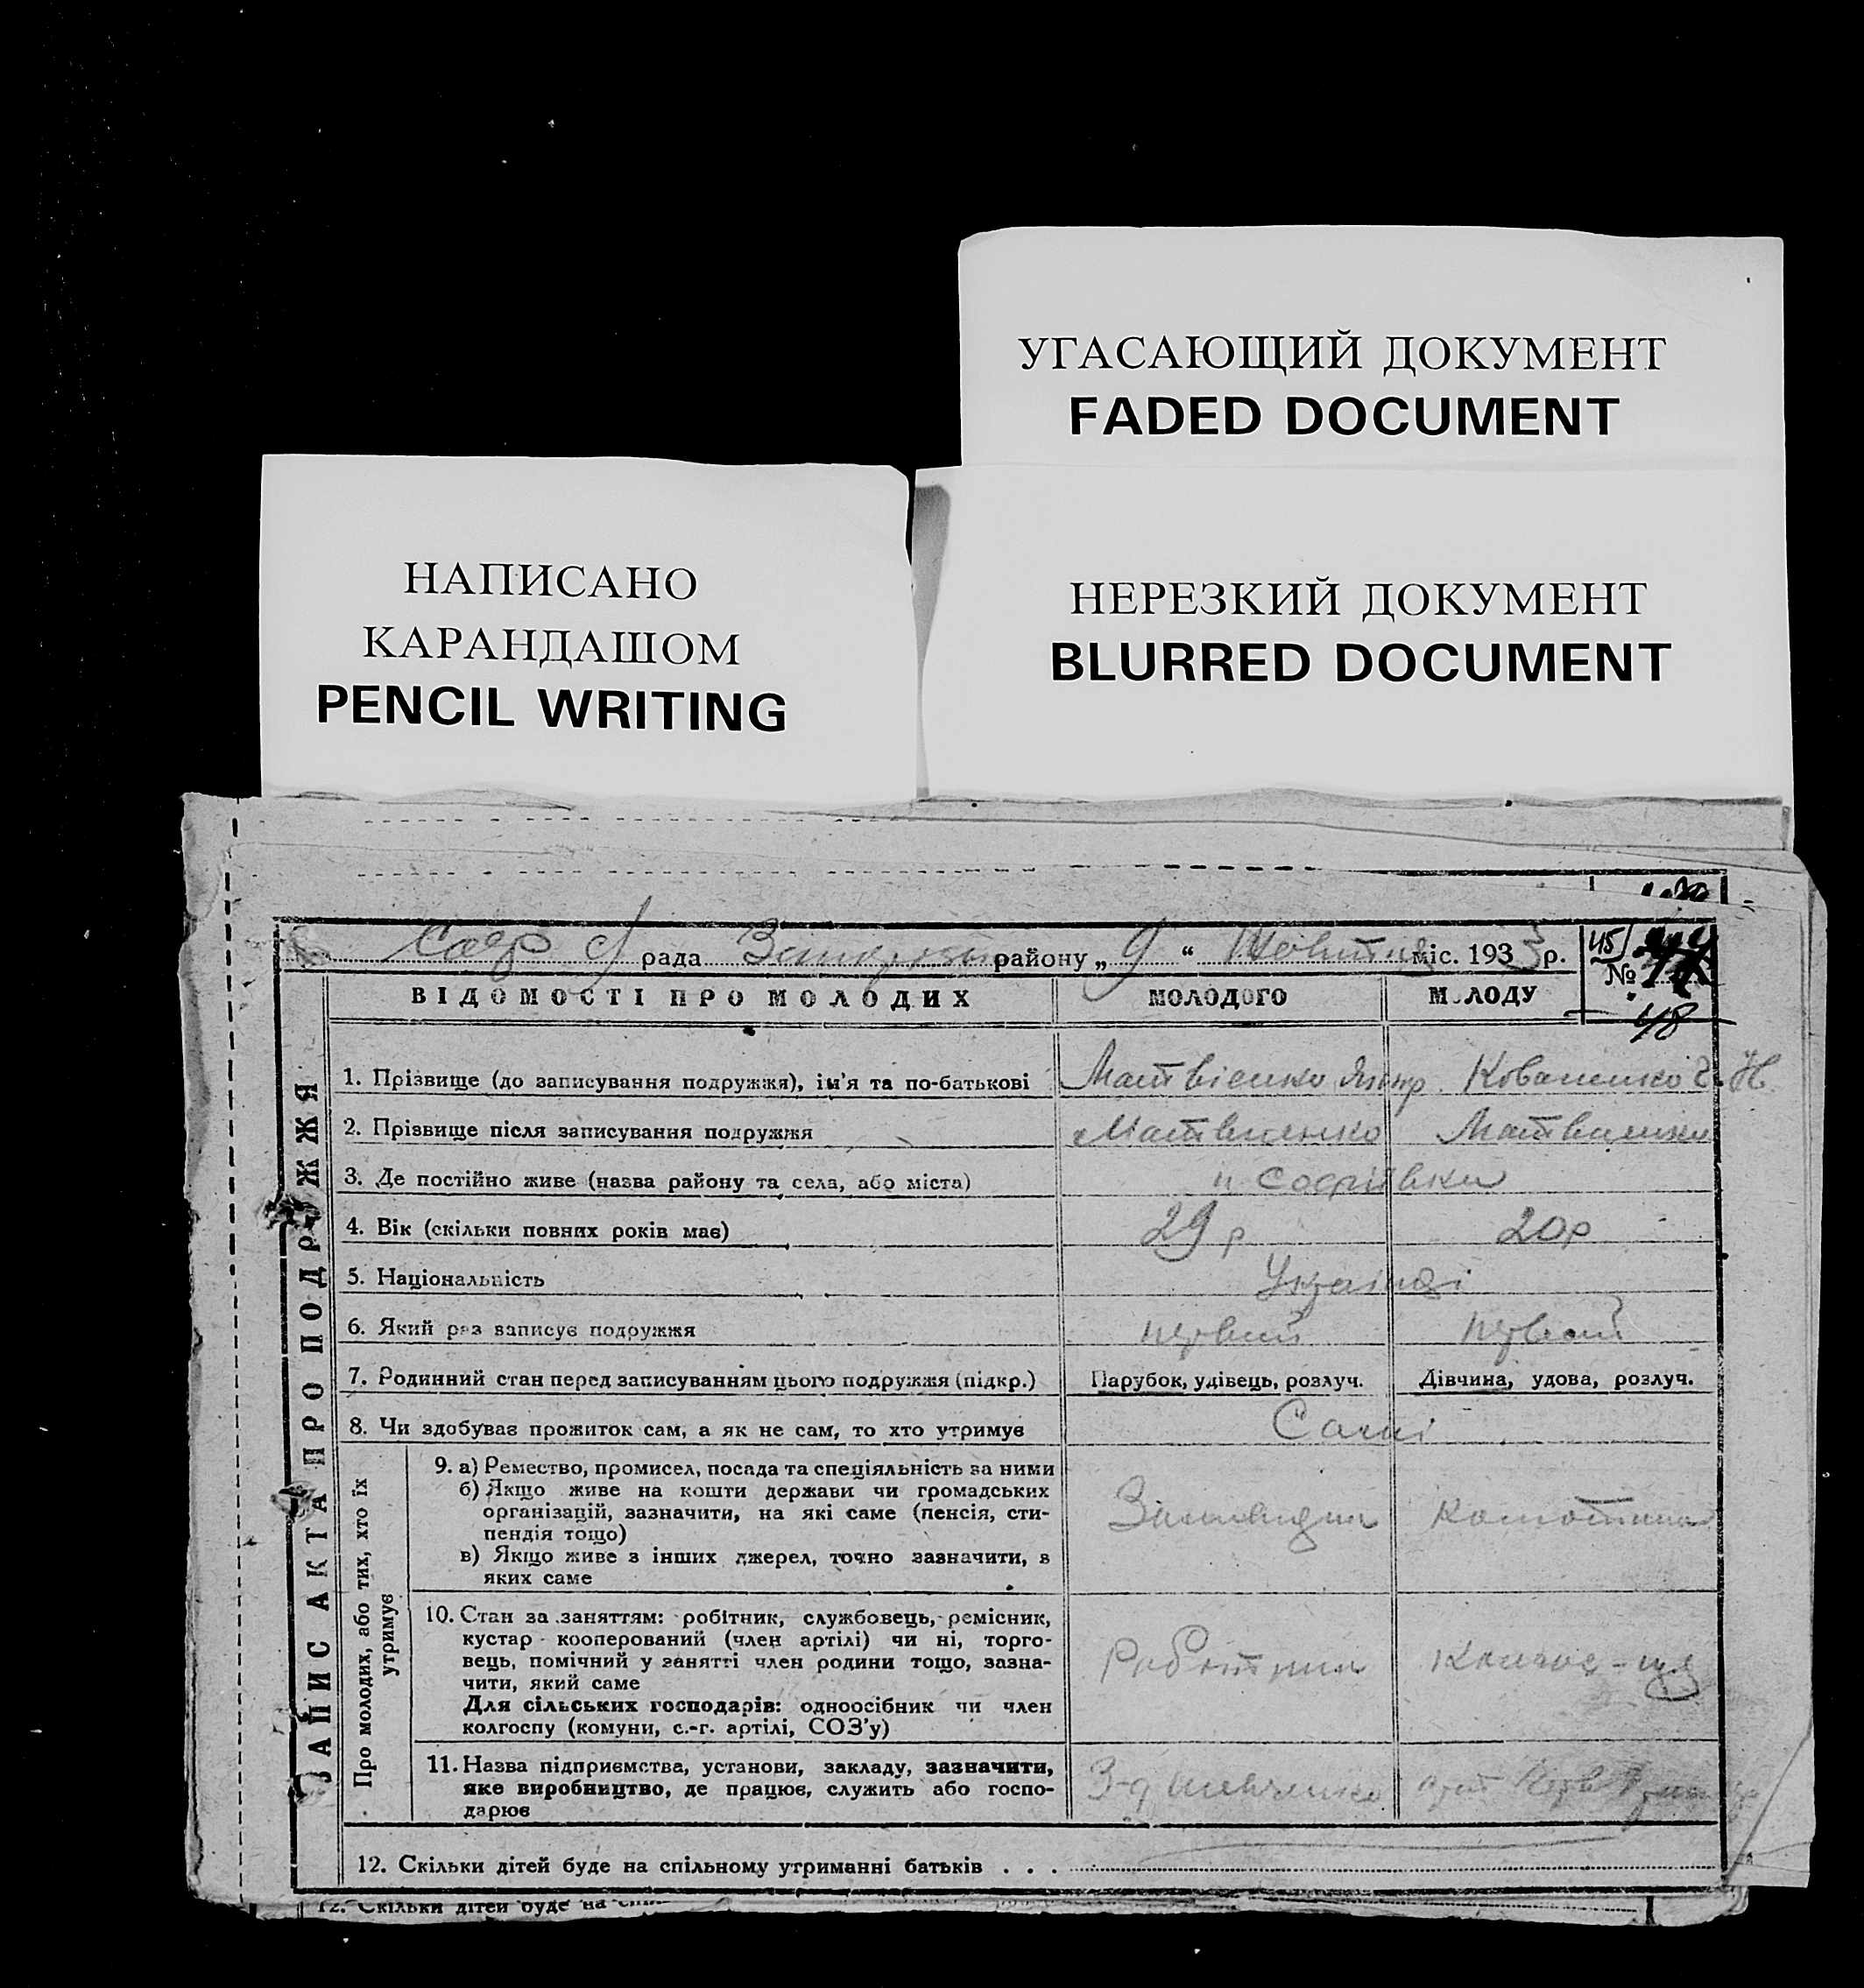 УГАСАЮЩИЙ ДОКУМЕНТ
FADED DOCUMENT
НАПИСАНО
КАРАНДАШОМ
PENCIL WRITING
НЕРЕЗКИЙ ДОКУМЕНТ
BLURRED DOCUMENT
рада району „ 9 “ Жовтня міс. 1933 р.
45
№
48
ЗАПИС АКТА ПРО ПОДРУЖЖЯ
ВІДОМОСТІ ПРО МОЛОДИХ МОЛОДОГО МОЛОДУ
1. Прізвище (до записування подружжя), ім'я та по-батькові Матвієнко Коваленко
2. Прізвище після записування подружжя Матвиенко Матвиенко
3. Де постійно живе (назва району та села, або міста) Софиівка
4. Вік (скільки повних років має) 29 р 20 р
5. Національність Украінці
6. Який раз записує подружжя первий первий
7. Родинний стан перед записуванням цього подружжя (підкр.) Парубок, удівець, розлуч. Дівчина, удова, розлуч.
8. Чи здобуває прожиток сам, а як не сам, то хто утримує Самі
Про молодих, або тих, хто їх утримує
9. а) Ремество, промисел, посада та спеціяльність за ними
б) Якщо живе на кошти держави чи громадських
організацій, зазначити, на які саме (пенсія, сти-
пендія тощо)
в) Якщо живе з інших джерел, точно зазначити, з
яких саме
10. Стан за заняттям: робітник, службовець, ремісник,
кустар кооперований (член артілі) чи ні, торго-
вець, помічний у занятті член родини тощо, зазна-
чити, який саме
Для сільських господарів: одноосібник чи член
колгоспу (комуни, с.-г. артілі, СОЗ'у)
Роботник
11. Назва підприємства, установи, закладу, зазначити,
яке виробництво, де працює, служить або госпо-
дарює
12. Скільки дітей буде на спільному утриманні батьків . . .
12. Скільки дітей буде на